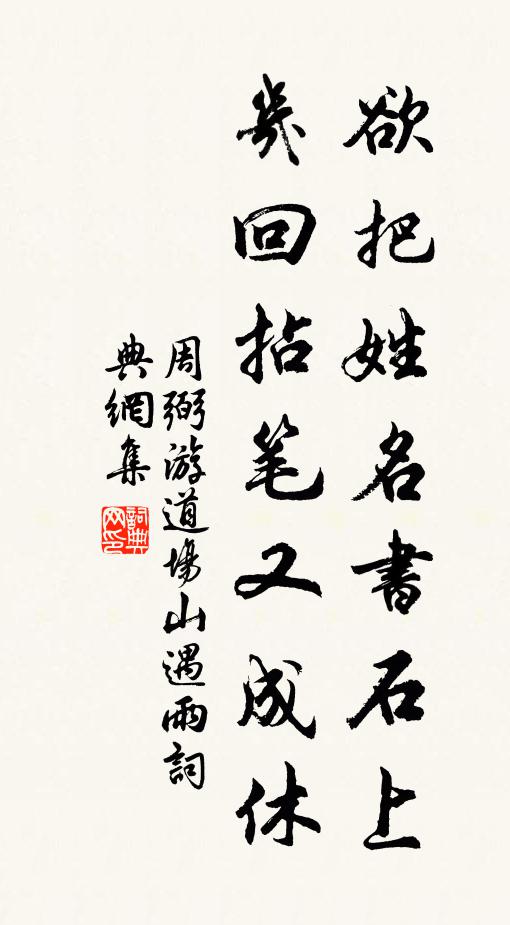 欲把姓名書石上
幾回拈笔又成休
周弼游道場山遇雨詞
典網集
詞典
网印